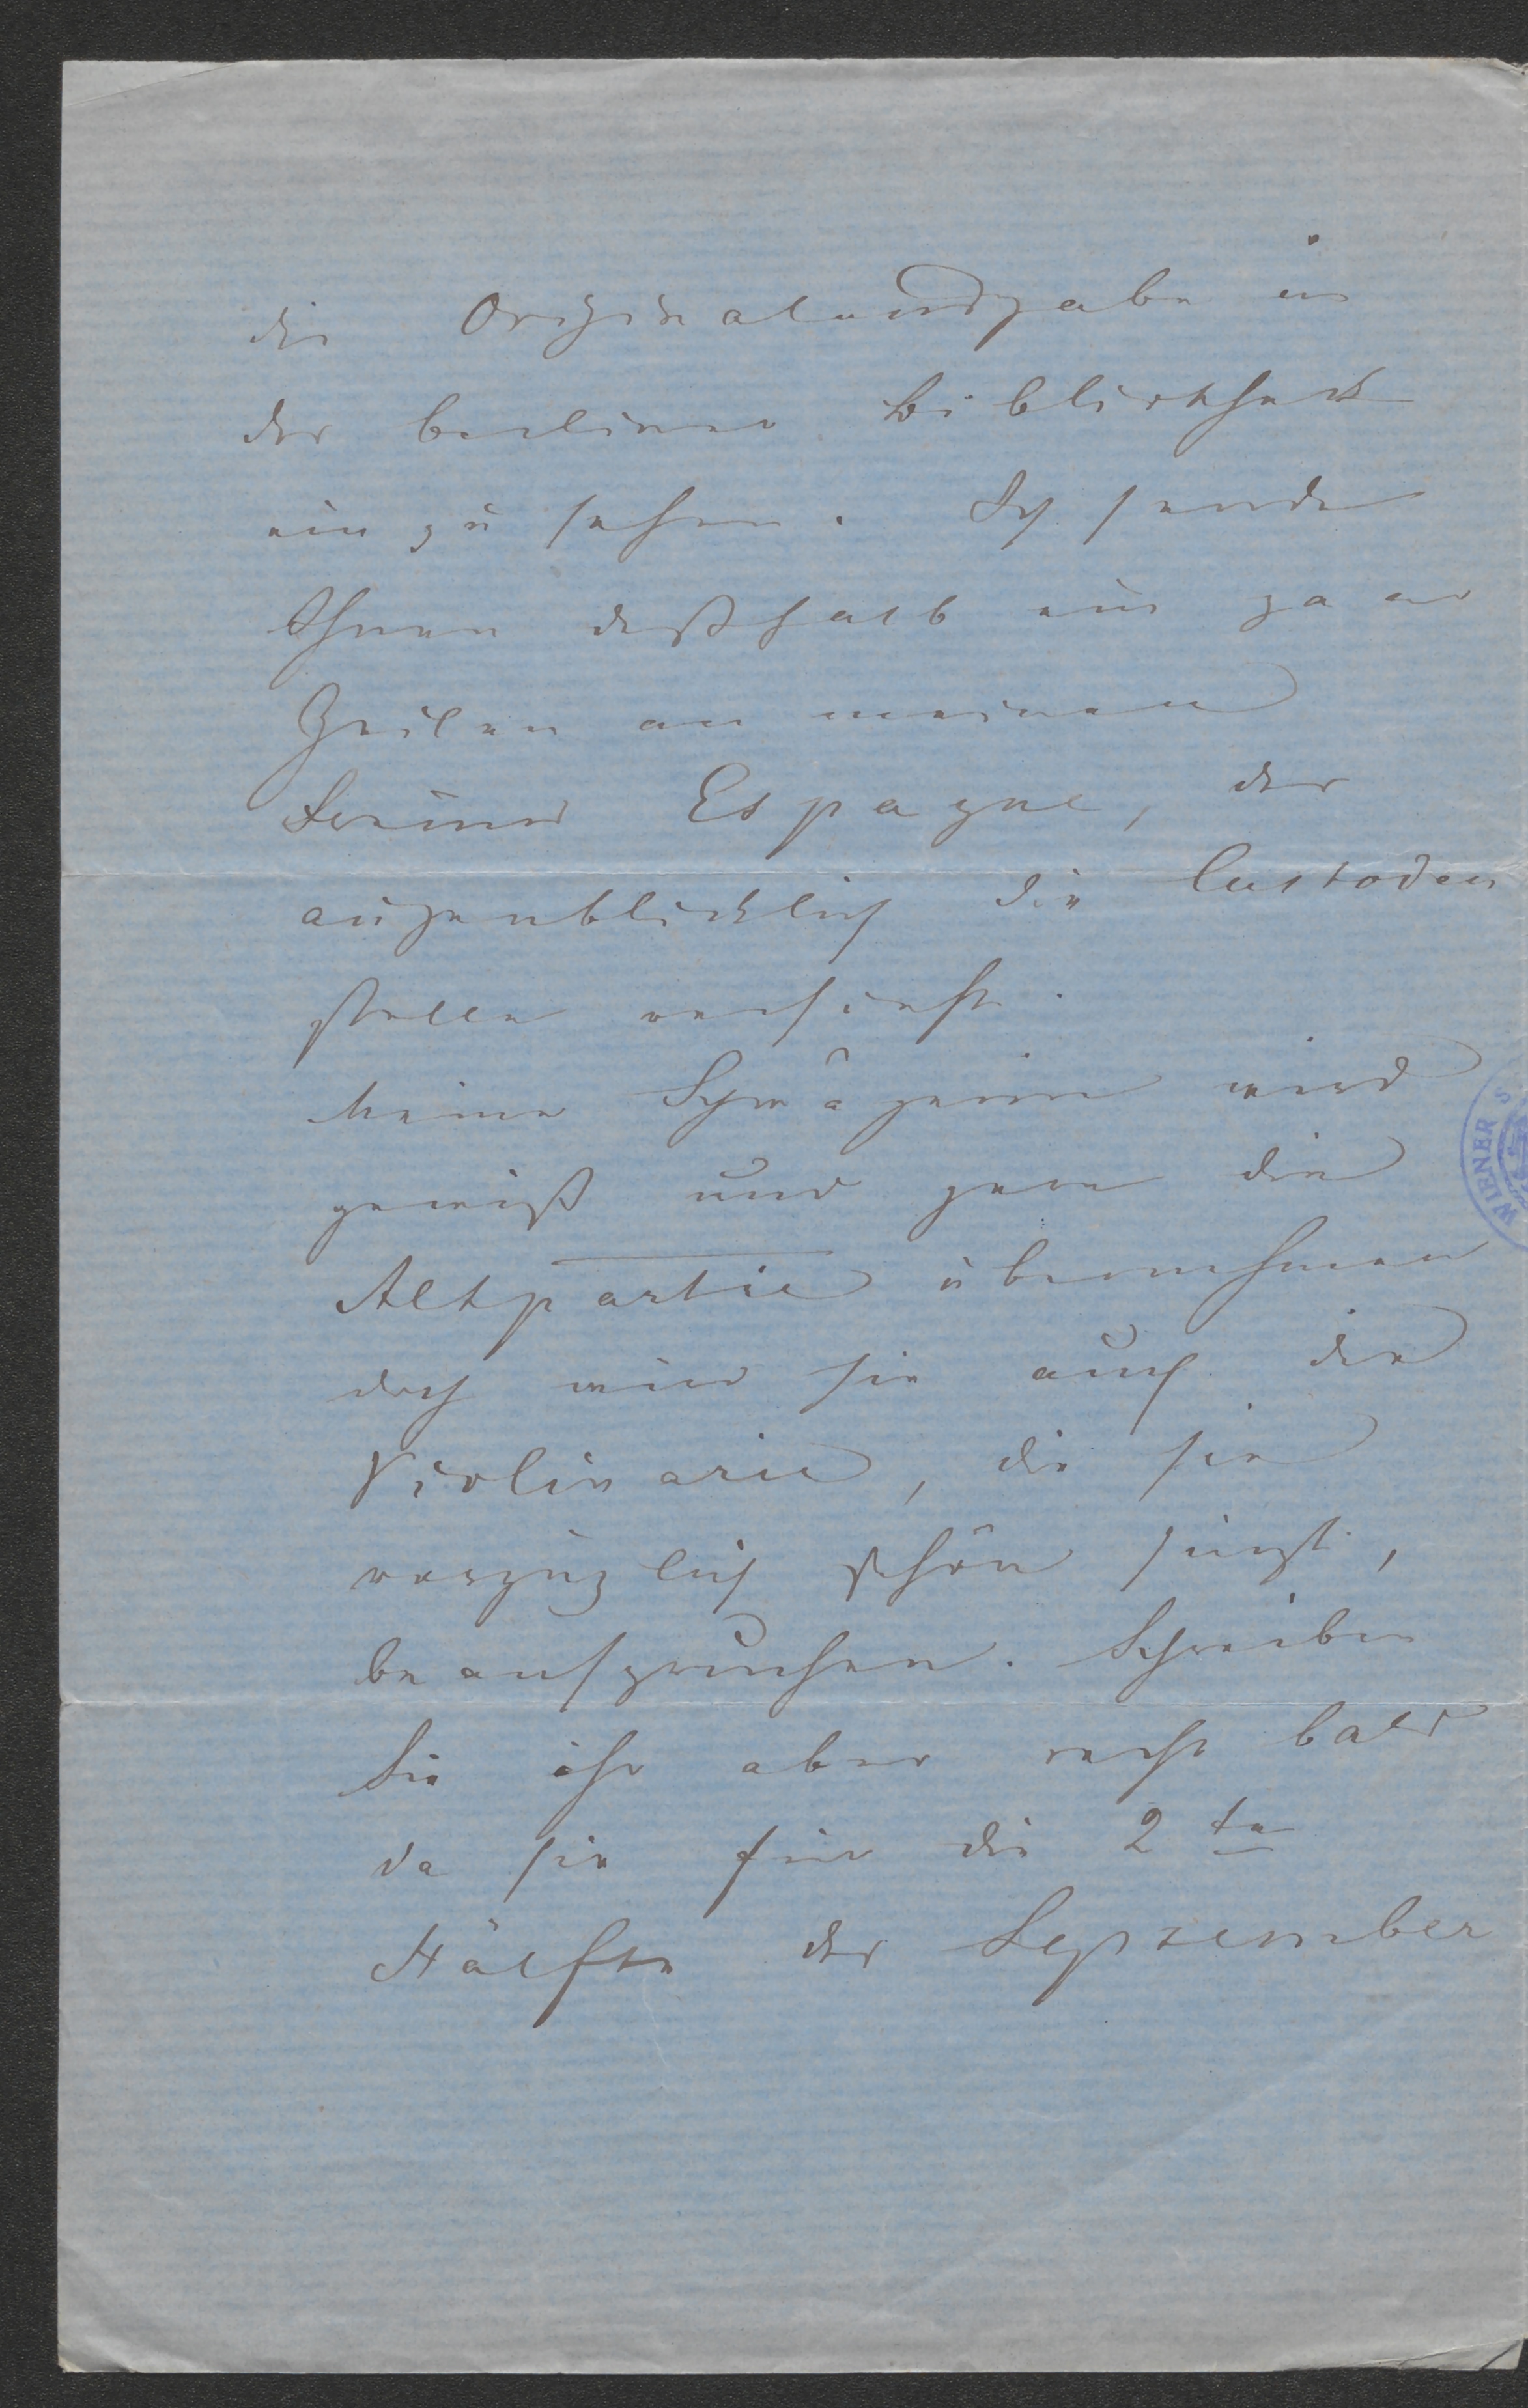 die Originalausgabe in
der berliner Bibliothek
ein zu sehen. Ich sende
Ihnen deßhalb ein paar
Zeilen an meinen
Freund Espagne, der
augenblicklich die Custoden
stelle versieht.
Meine Schwägerin wird
gewiß und gern die
Altpartie übernehmen
doch wird sie auch die
Violinarie, die sie
vorzüglich schön singt,
beanspruchen. Schreiben
Sie ihr aber recht bald
da sie für die 2te
Hälfte des September
WIENER S